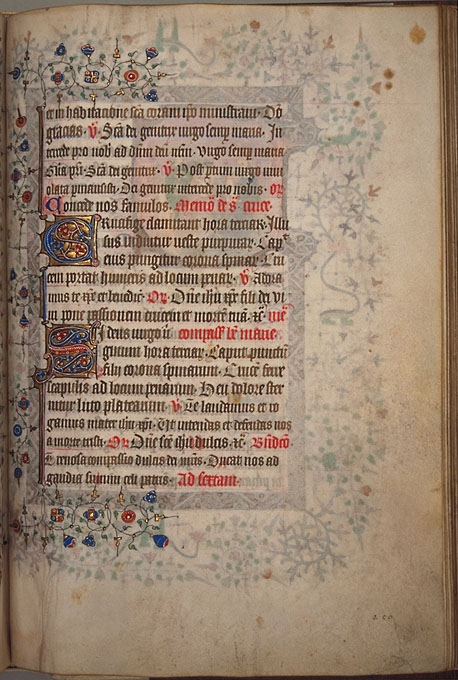 et in habitatione sca coram ipo ministraui. Deo
gracias. V. Sca dei genitrix uirgo semp maria. In
tercede pro nob ad dnm deu nrm. Virgo semp maria
V. Post partum uirgo inui
olata pmansisti. Dei genitrix intercede pro nobis. or
Concede nos famulos. Memo de s cruce.
Crucifige clamitant hora terciar. Illu
sus induitur ueste purpurar. Cap
eius pungitur corona spinar. Cru
cem portat humeris ad locum penar. V. Adora
mus te xpe et benedic. Or. Dne ihu xpe fili dei vi
ui pone passionem crucem et morte tua. &c.
compass be marie.
hora terciar. Caput punctum
filij corona spinarum. Cruce ferre
scapulis ad locum penarum. Heu dolore ster
nitur luto platearum. V. Te laudamus et ro
gamus mater ihu xpi. Ut intendas et defendas nos
a morte tristi. Or. Dne sce ihu dulcis &c.
penosa compassio dulcis dei mris. Ducat nos ad
gaudia summi celi patris. Ad sextam.